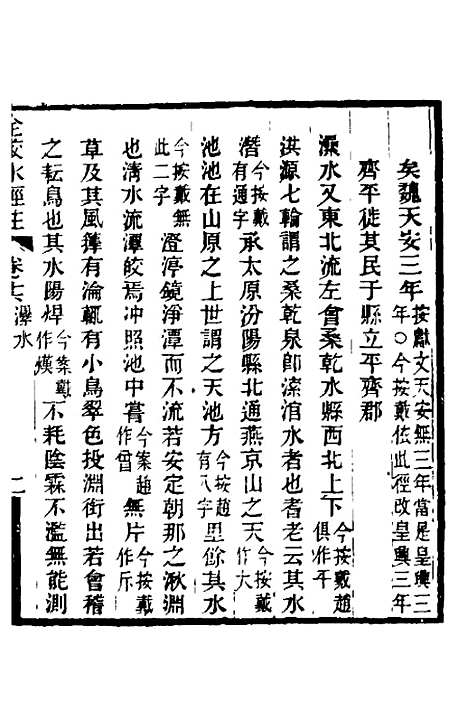 矣魏天安三年按獻文天安無三年當是皇興三年〇今按戴依此徑改皇興三年
齊平徙其民于縣立平齊郡
㶟水又東北流左會桑乾水縣西北上下今按戴趙俱作平
洪源七輪謂之桑乾泉卽溹涫水者也耆老云其水
潛今按戴有通字承太原汾陽縣北通燕京山之天今按戴作大
池池在山原之上世謂之天池方今按趙有八字里餘其水
今按戴無此二字澄渟鏡淨潭而不流若安定朝那之湫淵
也淸水流潭皎焉沖照池中嘗今案趙作曾無片今按戴作斥
草及其風籜有淪輒有小鳥翠色投淵銜出若會稽
之耘鳥也其水陽熯今案戴作熯不耗陰霖不濫無能測
全校水經注 卷十三 㶟水 二